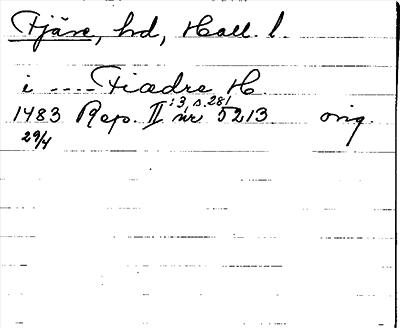 Fjäre, hd, Hall. l.
i ---- Fiædre H
1483 Rep. II :3, s. 281 nr 5213 orig.
29/4